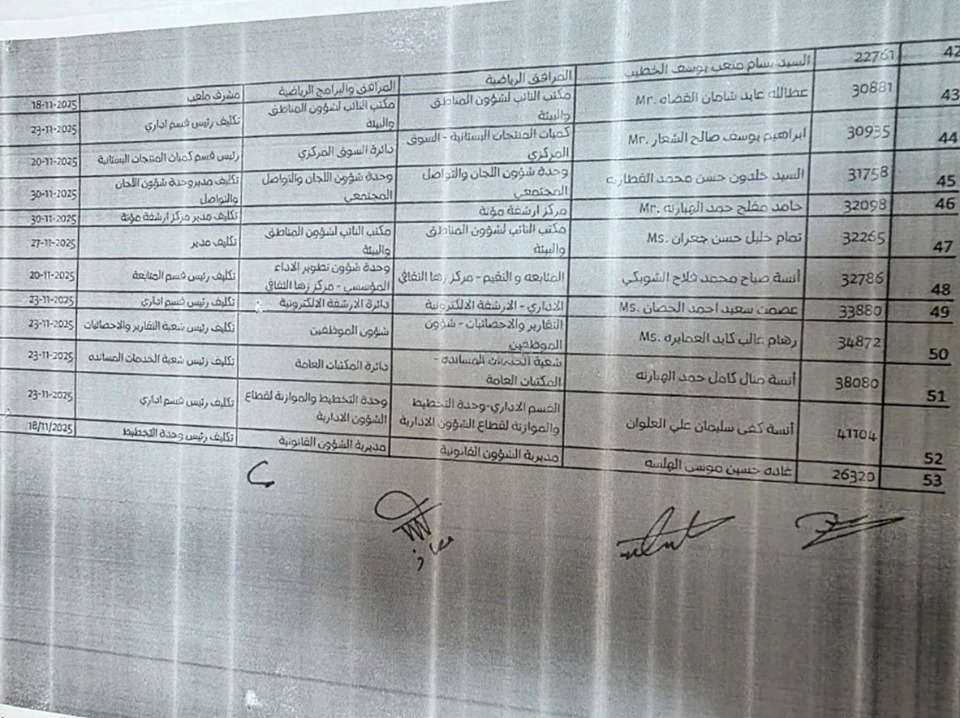 42 22761 السيد بسام متعب يوسف الخطيب المرافق الرياضية المرافق والبرامج الرياضية مشرف ملعب 18-11-2025
43 30881 عطالله عايد شامان القضاه Mr. مكتب النائب لشؤون المناطق والبيئة مكتب النائب لشؤون المناطق والبيئة تكليف رئيس قسم اداري 23-11-2025
44 30935 ابراهيم يوسف صالح الشعار Mr. كميات المنتجات البستانية - السوق المركزي دائرة السوق المركزي رئيس قسم كميات المنتجات البستانية 20-11-2025
45 31758 السيد خلدون حسن محمد القطارنه وحدة شؤون اللجان والتواصل المجتمعي وحدة شؤون اللجان والتواصل المجتمعي تكليف مدير وحدة شؤون اللجان والتواصل 30-11-2025
46 32098 حامد مفلح حمد الهبارنه Mr. مركز ارشفة مؤتة تكليف مدير مركز ارشفة مؤتة 30-11-2025
47 32265 تمام خليل حسن جعران Ms. مكتب النائب لشؤون المناطق والبيئة مكتب النائب لشؤون المناطق والبيئة تكليف مدير 27-11-2025
48 32786 آنسة صباح محمد فلاح الشوبكي المتابعه و التقيم - مركز زها الثقافي وحدة شؤون تطوير الاداء المؤسسي - مركز زها الثقافي تكليف رئيس قسم المتابعة 20-11-2025
49 33880 عصمت سعيد احمد الحصان Ms. الاداري - الارشفة الالكترونية دائرة الارشفة الالكترونية تكليف رئيس قسم اداري 23-11-2025
50 34872 رهام غالب كايد العمايره Ms. التقارير والاحصائيات - شؤون الموظفين شؤون الموظفين تكليف رئيس شعبة التقارير والاحصائيات 23-11-2025
51 38080 آنسة منال كامل حمد الهبارنه شعبة الخدمات المسانده - المكتبات العامة دائرة المكتبات العامة تكليف رئيس شعبة الخدمات المسانده 23-11-2025
52 41104 آنسة كفى سليمان علي العلوان القسم الاداري-وحدة التخطيط والموازنة لقطاع الشؤون الادارية وحدة التخطيط والموازنة لقطاع الشؤون الادارية تكليف رئيس قسم اداري 23-11-2025
53 26320 غاده حسين موسى الهلسه مديرية الشؤون القانونية مديرية الشؤون القانونية تكليف رئيس وحدة التخطيط 18/11/2025